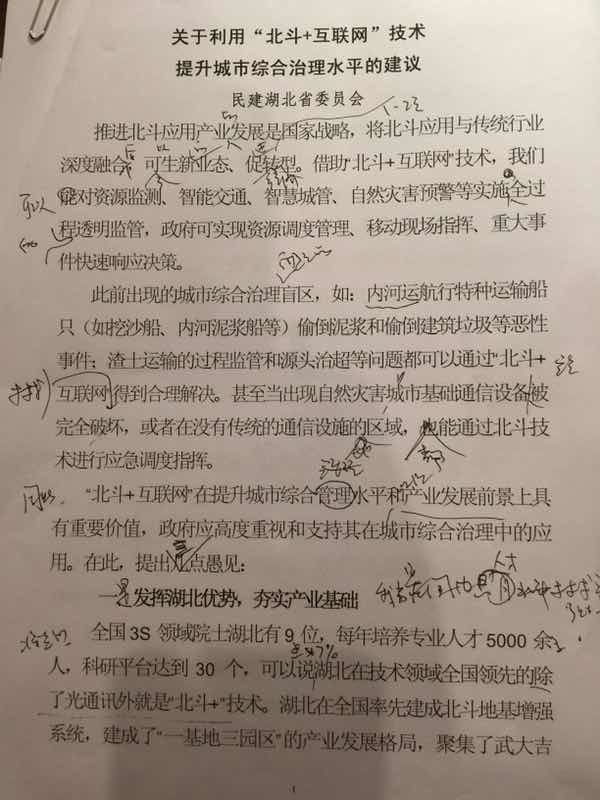 关于利用“北斗+互联网”技术
提升城市综合治理水平的建议
民建湖北省委员会
推进北斗应用产业发展是国家战略，将北斗应用与传统行业
深度融合，可生新业态、促转型。借助“北斗+互联网”技术，我们
能对资源监测、智能交通、智慧城管、自然灾害预警等实施全过
可以
程透明监管，政府可实现资源调度管理、移动现场指挥、重大事
件快速响应决策。
此前出现的城市综合治理盲区，如：内河运航行特种运输船
只（如挖沙船、内河泥浆船等）偷倒泥浆和偷倒建筑垃圾等恶性
事件；渣土运输的过程监管和源头治超等问题都可以通过“北斗+
互联网”得到合理解决。甚至当出现自然灾害城市基础通信设备被
完全破坏，或者在没有传统的通信设施的区域，也能通过北斗技
术进行应急调度指挥。
“北斗+互联网”在提升城市综合管理水平和产业发展前景上具
有重要价值，政府应高度重视和支持其在城市综合治理中的应
用。在此，提出几点愚见：
三
人才
一是发挥湖北优势，夯实产业基础
全国3S 领域院士湖北有9 位，每年培养专业人才5000 余
人，科研平台达到 30 个，可以说湖北在技术领域全国领先的除
了光通讯外就是“北斗+”技术。湖北在全国率先建成北斗地基增强
系统，建成了“一基地三园区”的产业发展格局，聚集了武大吉
1